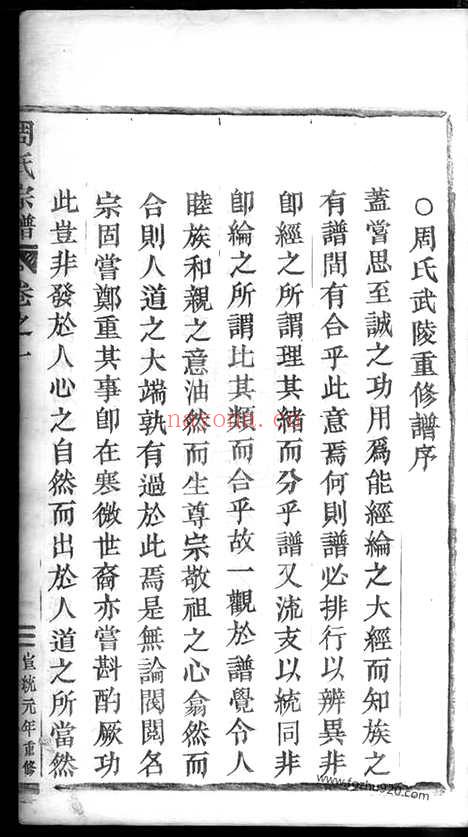 ○周氏武陵重修譜序
蓋嘗思至誠之功用爲能經綸之大經而知族之
有譜間有合乎此意焉何則譜必排行以辨異非
卽經之所謂理其緒而分乎譜又流支以統同非
卽綸之所謂比其類而合乎故一觀於譜覺令人
睦族和親之意油然而生尊宗敬祖之心翕然而
合則人道之大端孰有過於此焉是無論閥閱名
宗固嘗鄭重其事卽在寒微世裔亦嘗斟酌厥功
此豈非發於人心之自然而出於人道之所當然
周氏宗譜
卷之一
宣統元年重修
nayona.cn
www.fgzhu920.com